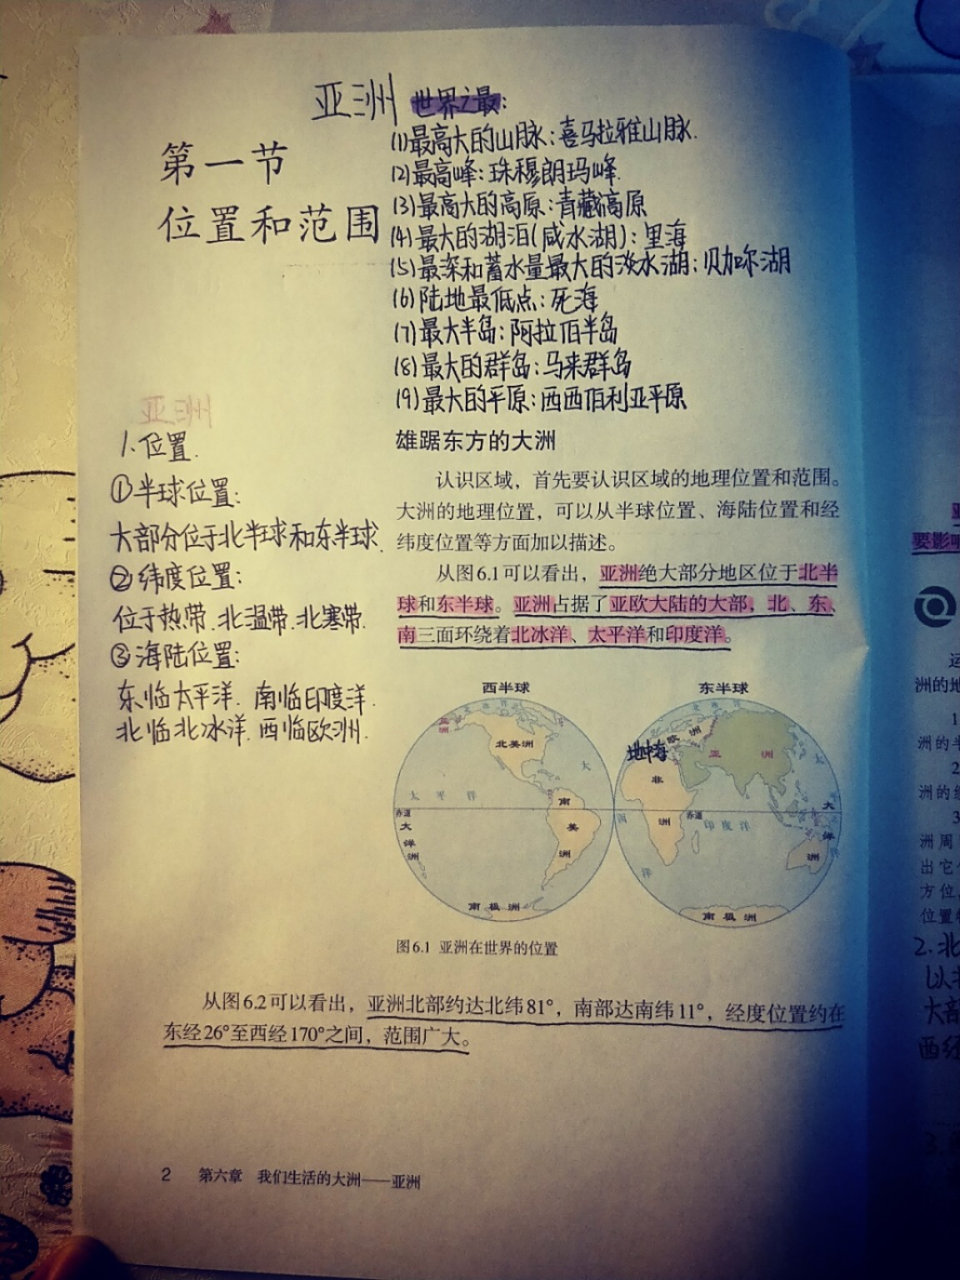 亚洲 世界之最:
(1)最高大的山脉:喜马拉雅山脉.
第一节
(2)最高峰:珠穆朗玛峰.
(3)最高大的高原:青藏高原
位置和范围
(4)最大的湖泊(咸水湖):里海
(5)最深和蓄水量最大的淡水湖:贝加尔湖
(6)陆地最低点:死海
(7)最大半岛:阿拉伯半岛
(8)最大的群岛:马来群岛
(9)最大的平原:西西伯利亚平原
1.位置.
①半球位置:
大部分位于北半球和东半球.
②纬度位置:
位于热带.北温带.北寒带.
③海陆位置:
东临太平洋.南临印度洋.
北临北冰洋.西临欧洲.
雄踞东方的大洲
认识区域，首先要认识区域的地理位置和范围。
大洲的地理位置，可以从半球位置、海陆位置和经
纬度位置等方面加以描述。
从图6.1可以看出，亚洲绝大部分地区位于北半
球和东半球。亚洲占据了亚欧大陆的大部，北、东、
南三面环绕着北冰洋、太平洋和印度洋。
西半球 东半球
北美洲
太平洋
赤道
南美洲
大洋洲
南极洲
地中海
欧洲
亚洲
非洲
赤道
印度洋
大洋洲
南极洲
图6.1 亚洲在世界的位置
从图6.2可以看出，亚洲北部约达北纬81°，南部达南纬11°，经度位置约在
东经26°至西经170°之间，范围广大。
2 第六章 我们生活的大洲——亚洲
要影响
洲的地
1
洲的半
2
洲的经
3
洲周
出它
方位
位置
2.北
以北
大部
西经